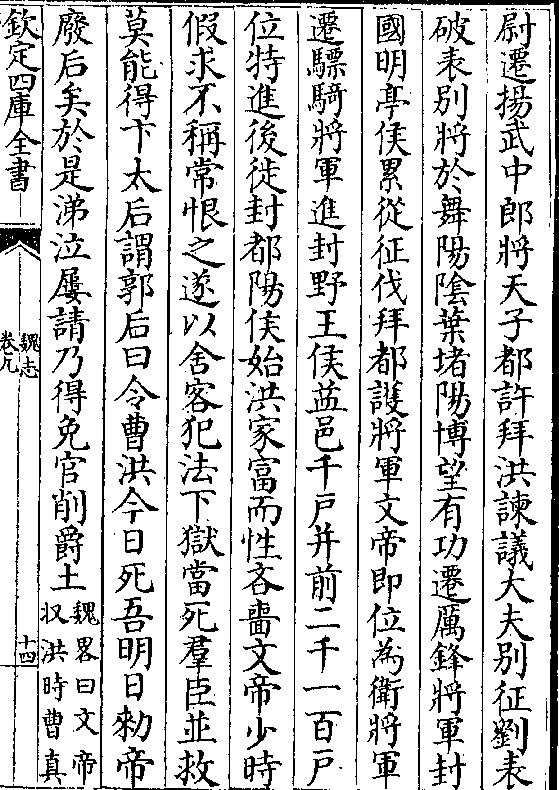 尉遷揚武中郎將天子都許拜洪諫議大夫別征劉表
破表別將於舞陽陰葉堵陽博望有功遷厲鋒將軍封
國明亭侯累從征伐拜都護將軍文帝即位為衛將軍
遷驃騎將軍進封野王侯益邑千戶并前二千一百戶
位特進後徙封都陽侯始洪家富而性吝嗇文帝少時
假求不稱常恨之遂以舍客犯法下獄當死羣臣並救
莫能得卞太后謂郭后曰令曹洪今日死吾明日勑帝
廢后矣於是涕泣屢請乃得免官削爵土
魏畧曰文帝
収洪時曹真
欽定四庫全書
魏志
卷九
十四